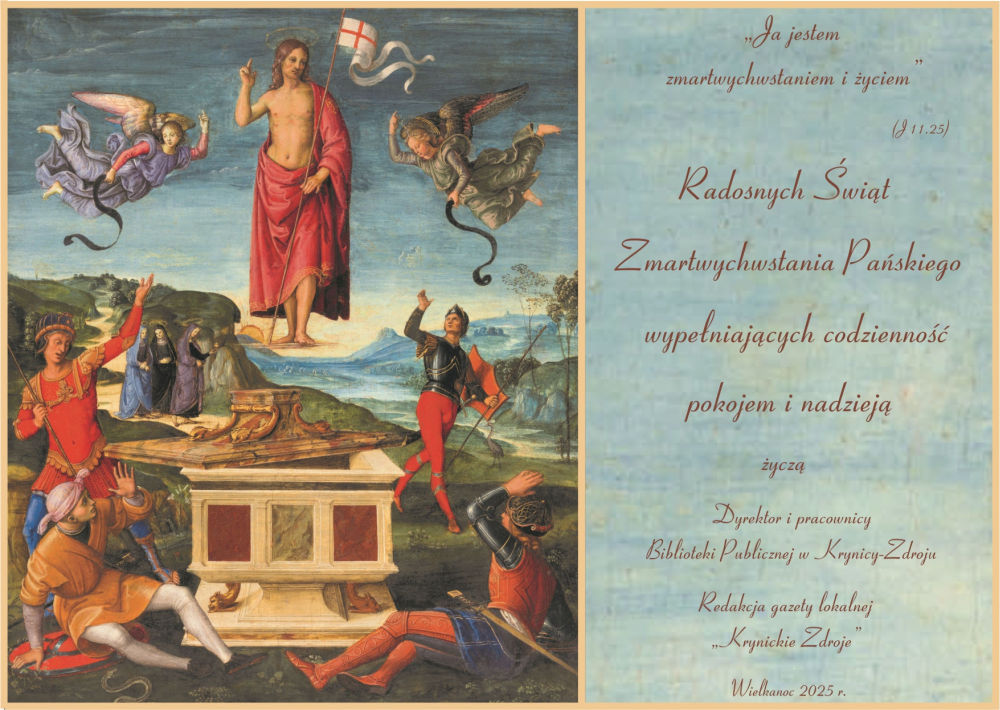 „Ja jestem
zmartwychwstaniem i życiem”
(J 11,25)
Radosnych Świąt
Zmartwychwstania Pańskiego
wypełniających codzienność
pokojem i nadzieją
życzą
Dyrektor i pracownicy
Biblioteki Publicznej w Krynicy-Zdroju
Redakcja gazety lokalnej
„Krynickie Zdroje”
Wielkanoc 2025 r.